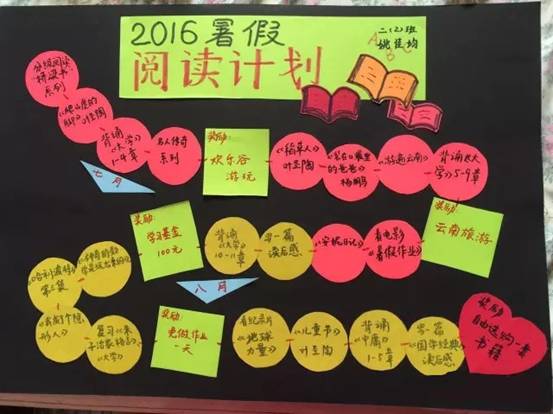 2016暑假
阅读计划
二(2)班
姚佳均
分级阅读
桥梁书
系列
叶圣陶
背诵
《大学》
1-4章
名人传奇
系列
奖励:
欢乐谷
游玩
《稻草人》
叶圣陶
的爸爸》
杨鹏
《游遍云南》
背诵《大
学》5-9章
七月
奖励:
云南旅游
看电影
《暑假作业》
《安妮日记》
写一篇
读后感
背诵
《大学》
10-11章
奖励:
学习基金
100元
《哈利波特》
第三集
八月
《我有个隐
形人》
复习《朱
子治家格言》
《大学》
奖励:
免做作业
一天
看纪录片
《地球
力量》
《儿童节》
叶圣陶
背诵
《中庸》
1-5章
写一篇
《国学经典》
读后感
奖励:
自由选购一套
书籍